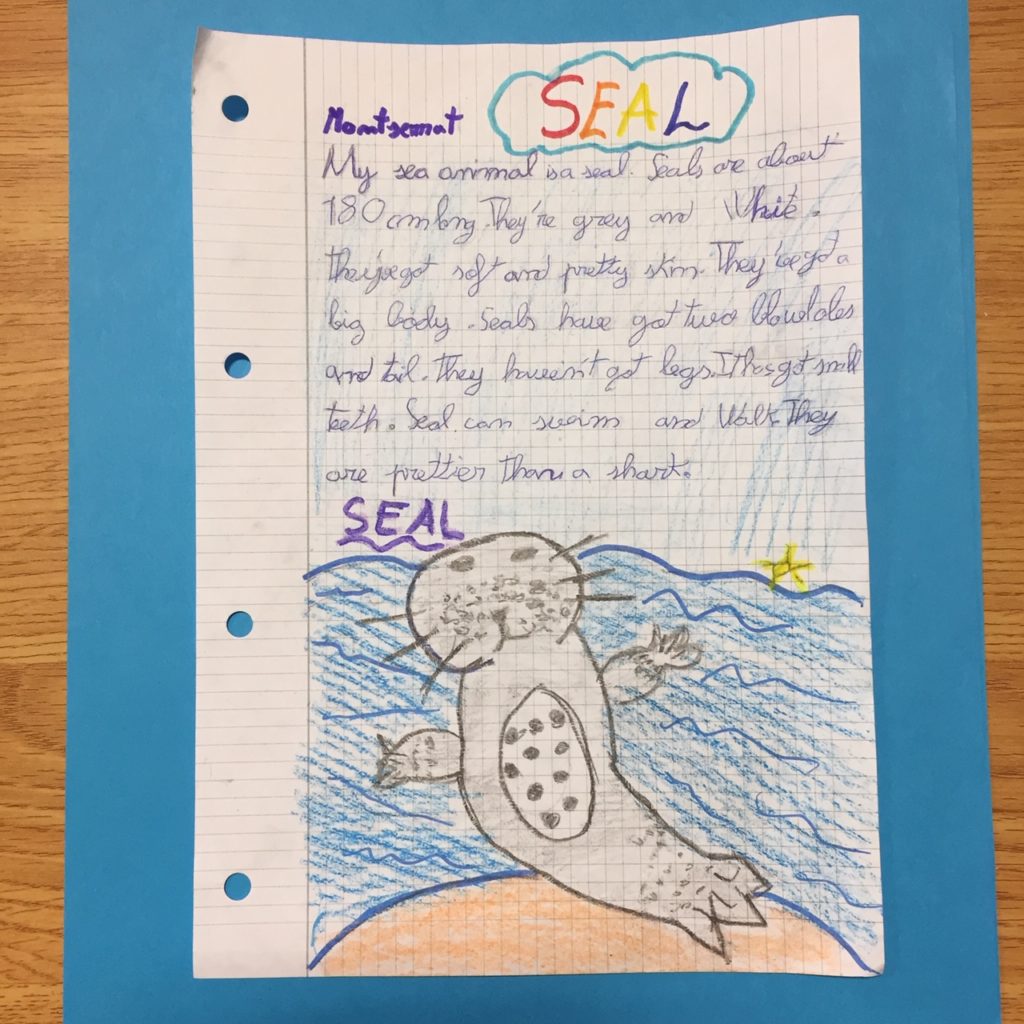 SEAL
Montserrat
My sea animal is a seal. Seals are about
180 cm long. They're grey and White.
they've got soft and pretty skin. They've got a
big body. Seals have got two blowholes
and tail. They haven't got legs. It has got small
teeth. Seal can swim and Walk. They
are prettier than a shark.
SEAL